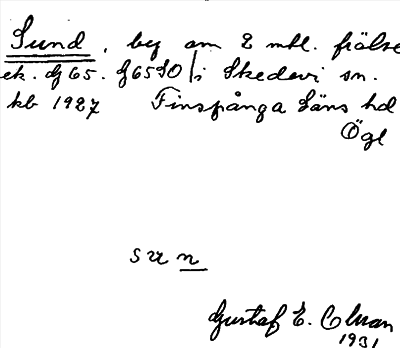 Sund, by om 2 mtl. frälse
ek. bl 65. bl 65 SO i Skedevi sn.
kb 1927 Finspånga läns hd
Ögl
sun
Gustaf E. Olman
1931